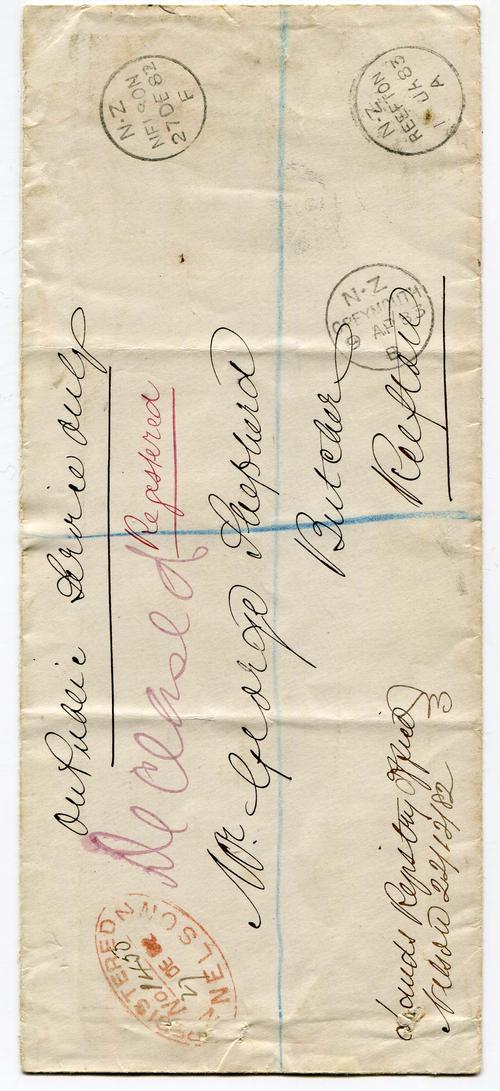 On Public Service only
Registered
Deceased
Mr. George Shepherd
Butcher
Reefton
Lands Registry Office
Nelson 22/12/82
REGISTERED N
No 1450
27 DE 82
NELSON
N.Z
NELSON
27 DE 82
F
N.Z
REEFTON
1 JA 83
A
N.Z
GREYMOUTH
AP 83
B